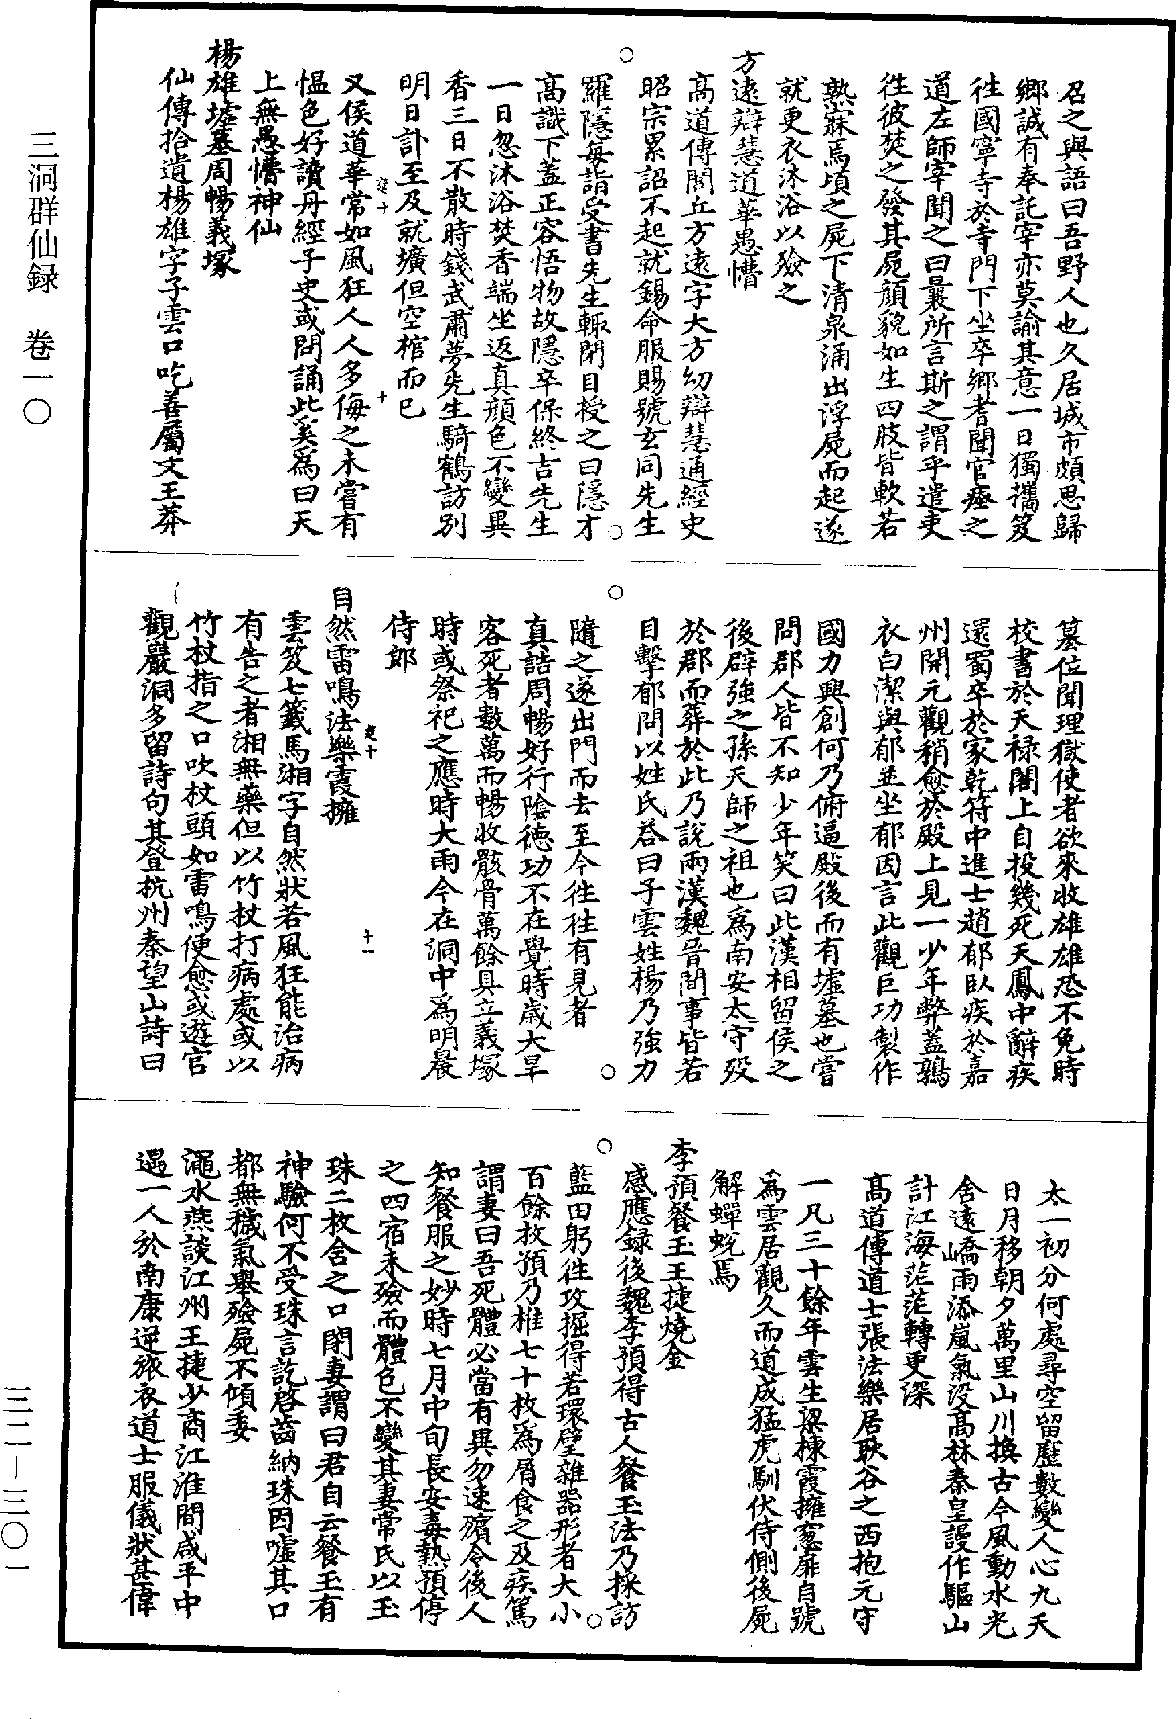 召之與語曰吾野人也久居城市頗思歸
鄉誠有奉託宰亦莫諭其意一日獨攜笈
徃國寧寺於寺門下坐卒鄉耆聞官瘞之
道左師宰聞之曰曩所言斯之謂乎遣吏
徃彼焚之發其屍顔貌如生四肢皆軟若
熟寐焉頃之屍下清泉涌出浮屍而起遂
就更衣沐浴以殮之
方遠辯慧道華愚懵
高道傳閭丘方遠字大方幼辯慧通經史
昭宗累詔不起就錫命服賜號玄同先生
羅隱每詣受書先生輙閉目授之曰隱才
高識下蓋正容悟物故隱卒保終吉先生
一日忽沐浴焚香端坐返真顔色不變異
香三日不散時錢武肅夢先生騎鶴訪别
明日訃至及就壙但空棺而已
又侯道華常如風狂人人多侮之未嘗有
愠色好讀丹經子史或問誦此奚爲曰天
上無愚懵神仙
楊雄墟墓周暢義塚
仙傳拾遺楊雄字子雲口吃善屬文王莽
簒位聞理獄使者欲來收雄雄恐不免時
校書於天禄閣上自投幾死天鳳中辭疾
還蜀卒於家乾符中進士趙郁臥疾於嘉
州開元觀稍愈於殿上見一少年弊蓋鶉
衣白潔與郁並坐郁因言此觀巨功製作
國力興創何乃俯逼殿後而有墟墓也嘗
問郡人皆不知少年笑曰此漢相留侯之
後辟強之孫天師之祖也爲南安太守殁
於郡而葬於此乃說兩漢魏晉間事皆若
目擊郁問以姓氏荅曰子雲姓楊乃強力
隨之遂出門而去至今徃徃有見者
真誥周暢好行隂德功不在覺時歲大旱
客死者數萬而暢收骸骨萬餘具立義塚
時或祭祀之應時大雨今在洞中爲明晨
侍郎
自然雷鳴法樂霞擁
雲笈七籤馬湘字自然狀若風狂能治病
有告之者湘無藥但以竹杖打病處或以
竹杖指之口吹杖頭如雷鳴便愈或遊宫
觀巖洞多留詩句其登杭州秦望山詩曰
太一初分何處尋空留歷數變人心九天
日月移朝夕萬里山川換古今風動水光
舍遠嶠雨添嵐氣没高林秦皇謾作驅山
計江海茫茫轉更深
高道傳道士張法樂居耿谷之西抱元守
一凡三十餘年雲生梁棟霞擁窻扉自號
爲雲居觀久而道成猛虎馴伏侍側後屍
解蟬蛻焉
李預餐玉王捷燒金
感應録後魏李預得古人餐玉法乃採訪
藍田躬徃攻掘得若環璧雜器形者大小
百餘枚預乃椎七十枚爲屑食之及疾篤
謂妻曰吾死體必當有異勿速殯令後人
知餐服之妙時七月中旬長安毒熱預停
之四宿未殮而體色不變其妻常氏以玉
珠二枚含之口閉妻謂曰君自云餐玉有
神驗何不受珠言訖啓齒納珠因噓其口
都無穢氣舉殮屍不傾委
澠水燕談江州王捷少商江淮間咸平中
遇一人於南康逆旅衣道士服儀狀甚偉
三洞群仙録　卷一〇
三二—三〇一